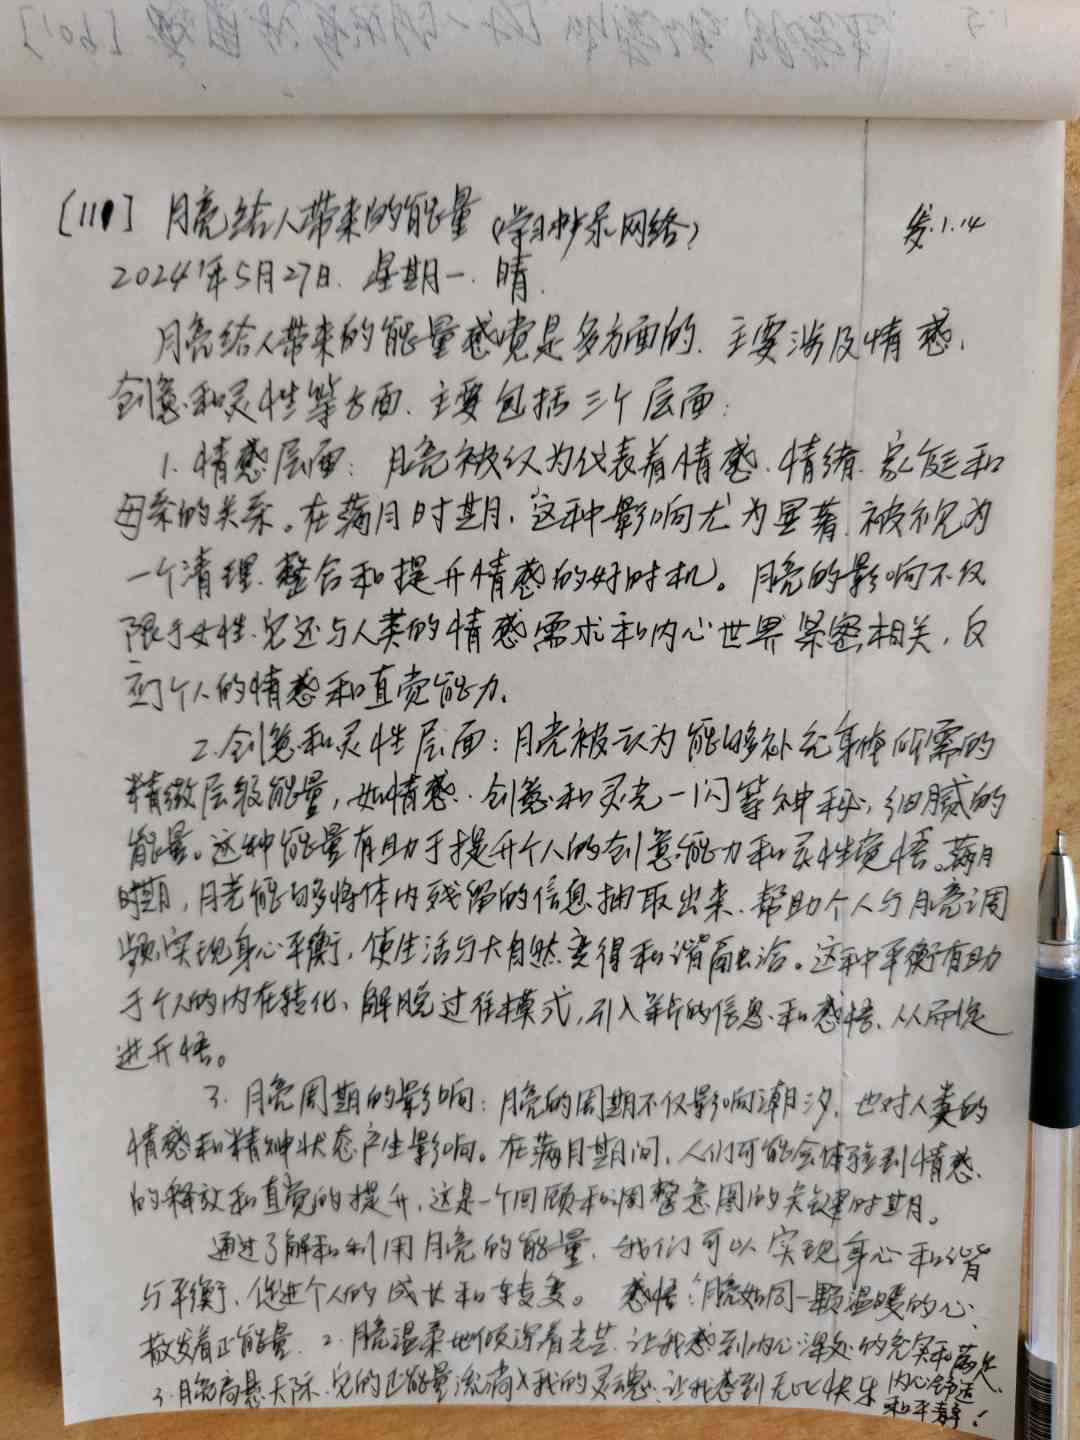 [111] 月亮给人带来的能量（学习抄录网络） 发.1.14
2024年5月27日. 星期一. 晴.
月亮给人带来的能量感觉是多方面的、主要涉及情感、
创意和灵性等方面、主要包括三个层面：
1. 情感层面：月亮被认为代表着情感、情绪、家庭和
母亲的关系。在满月时期，这种影响尤为显著、被视为
一个清理、整合和提升情感的好时机。月亮的影响不仅
限于女性、它还与人类的情感需求和内心世界紧密相关，反
应个人的情感和直觉能力、
2. 创意和灵性层面：月亮被认为能够补充身体所需的
精微层级能量，如情感、创意和灵光一闪等神秘、细腻的
能量。这种能量有助于提升个人的创意能力和灵性觉悟。满月
时期，月光能够将体内残留的信息抽取出来、帮助个人与月亮调
频实现身心平衡，使生活与大自然变得和谐融洽。这种平衡有助
于个人的内在转化、解脱过往模式，引入新的信息和感悟、从而促
进开悟。
3. 月亮周期的影响：月亮的周期不仅影响潮汐、也对人类的
情感和精神状态产生影响。在满月期间、人们可能会体验到情感
的释放和直觉的提升、这是一个回顾和调整意图的关键时期。
通过了解和利用月亮的能量、我们可以实现身心和谐
与平衡、促进个人的成长和转变。 感悟：1月亮如同一颗温暖的心、
散发着正能量. 2. 月亮温柔地倾泻着光芒、让我感到内心深处的充实和满足、
3. 月亮高悬天际、它的正能量流淌入我的灵魂、让我感到无比快乐
内心舒适
和平静！